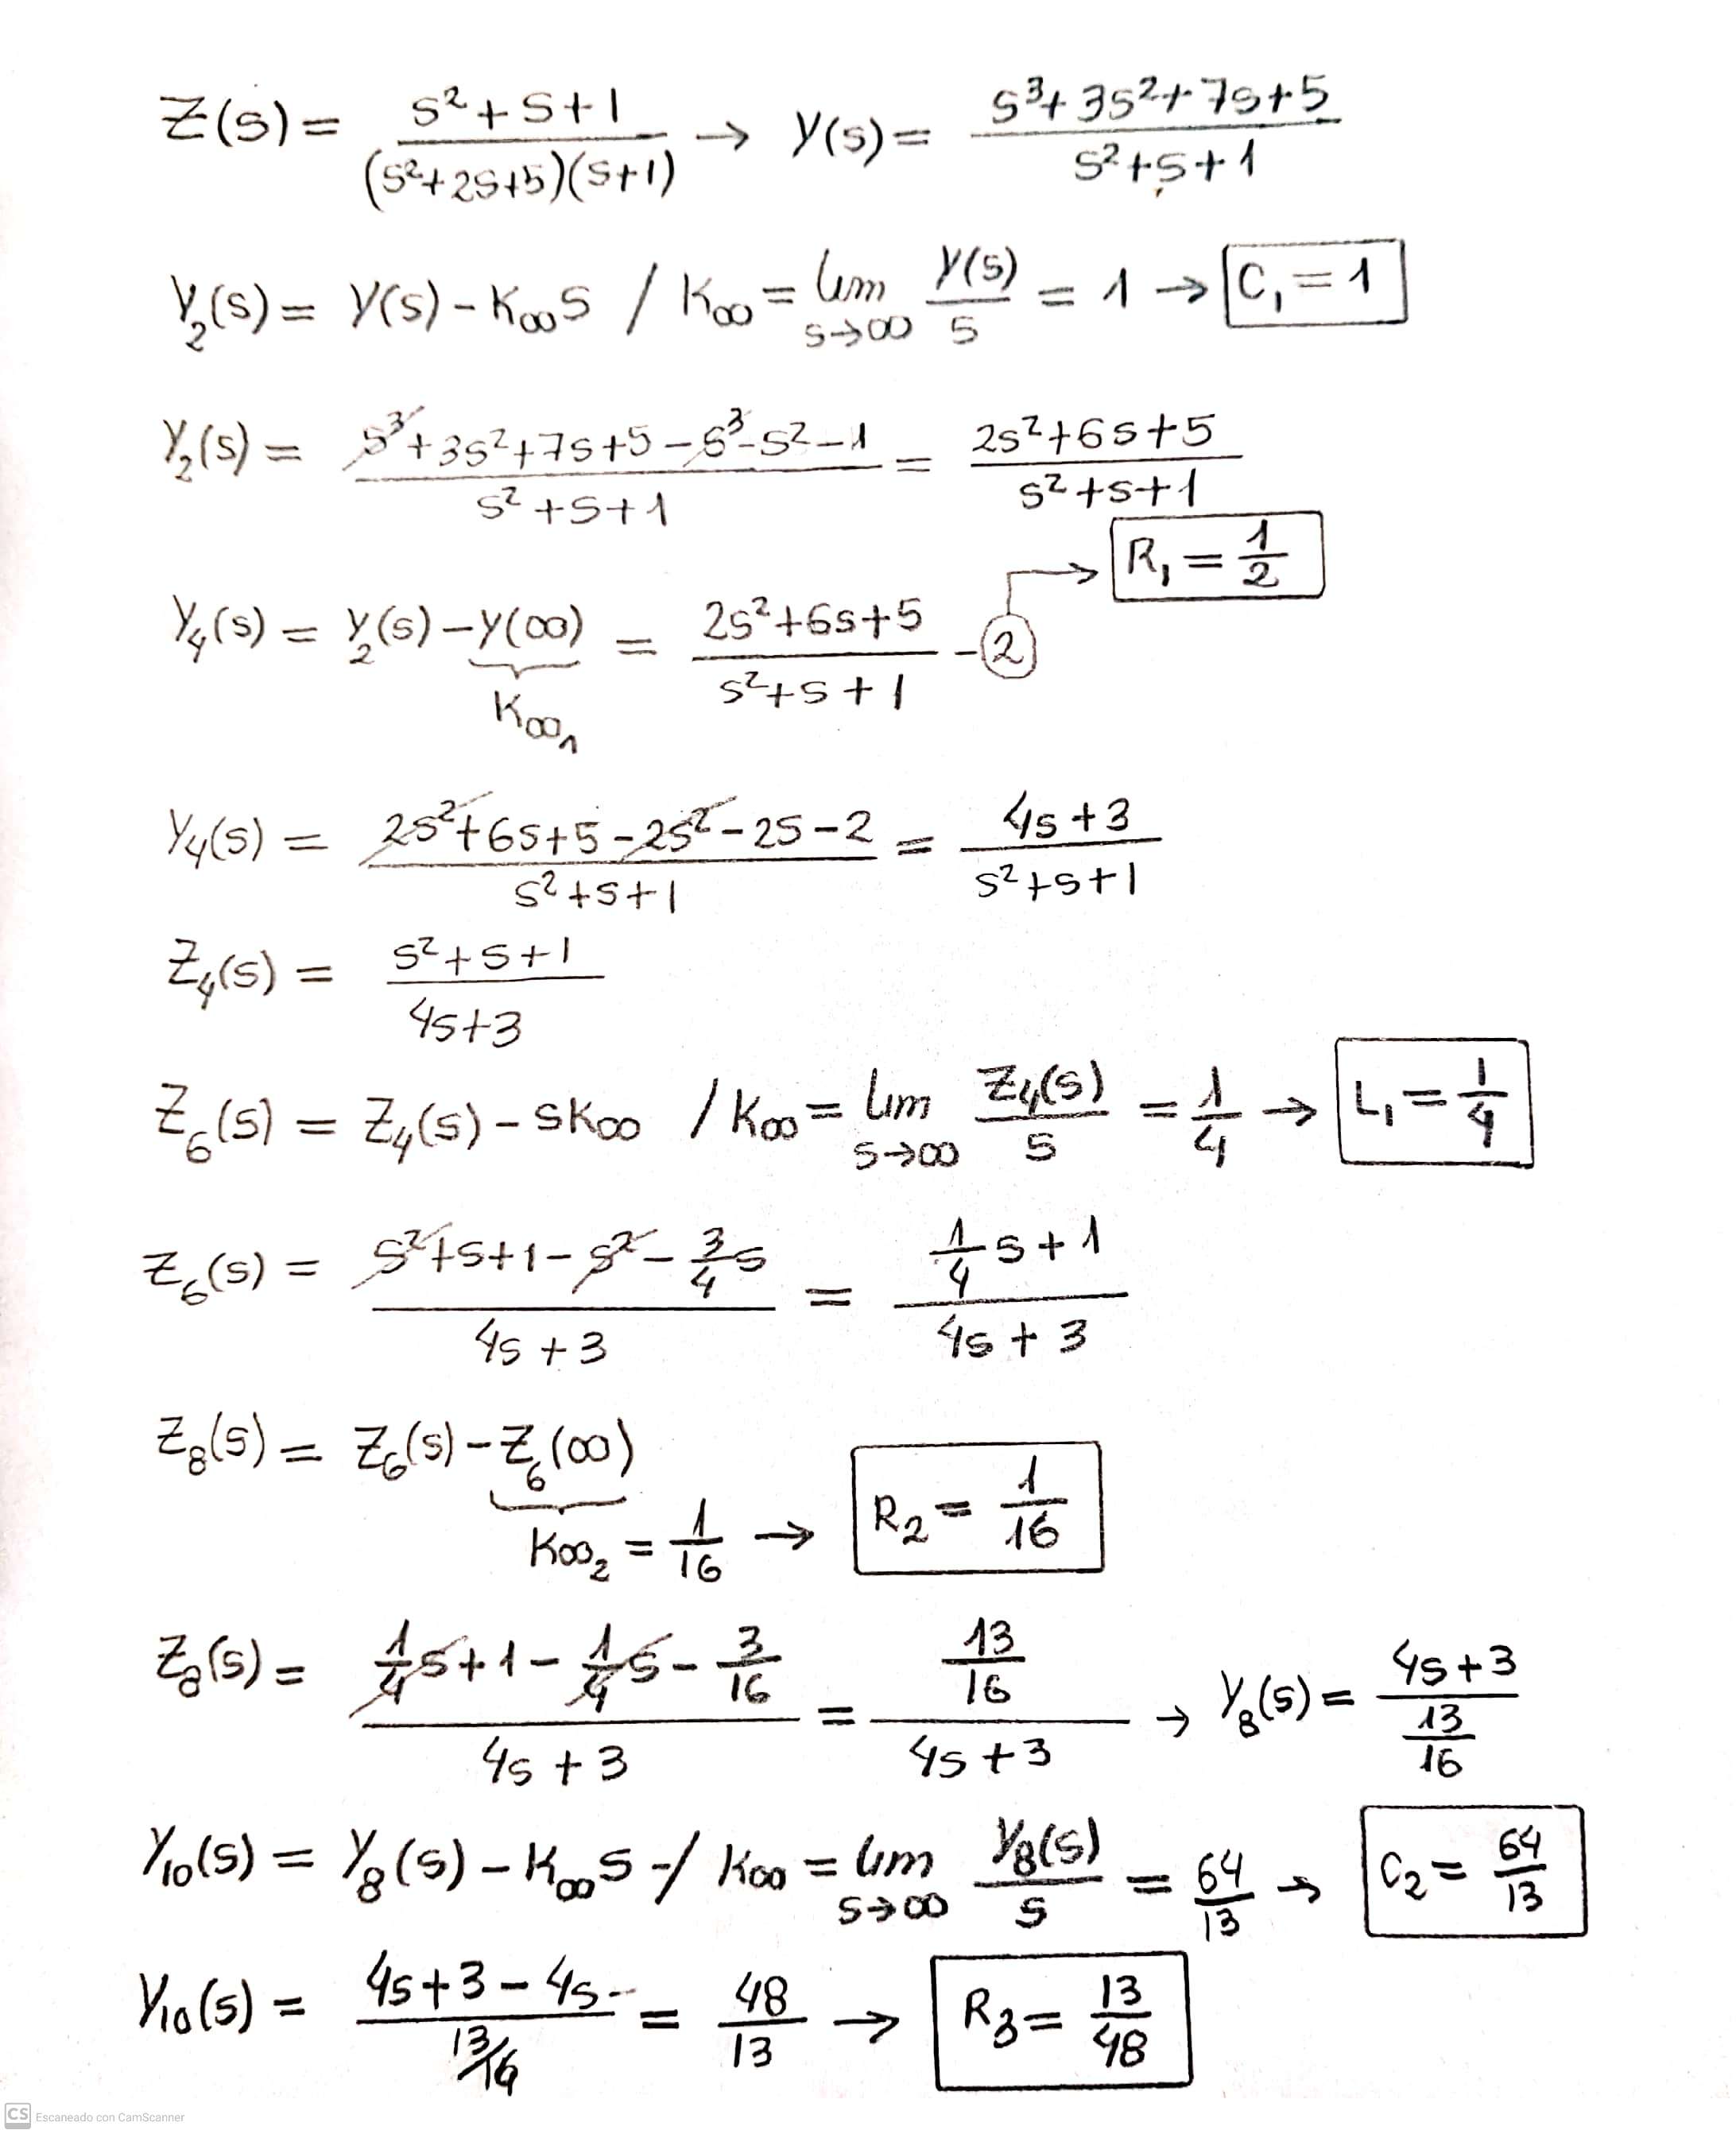 Z(s) = (s² + s + 1) / ((s² + 2s + 5)(s + 1)) → Y(s) = (s³ + 3s² + 7s + 5) / (s² + s + 1)
Y₂(s) = Y(s) - K∞ s / K∞ = lim s→∞ Y(s)/s = 1 → C₁ = 1
Y₂(s) = (s³ + 3s² + 7s + 5 - s³ - s² - 1) / (s² + s + 1) = (2s² + 6s + 5) / (s² + s + 1)
Y₄(s) = Y₂(s) - Y(∞) = (2s² + 6s + 5) / (s² + s + 1) - 2 → R₁ = 1/2
K∞₁
Y₄(s) = (2s² + 6s + 5 - 2s² - 2s - 2) / (s² + s + 1) = (4s + 3) / (s² + s + 1)
Z₄(s) = (s² + s + 1) / (4s + 3)
Z₆(s) = Z₄(s) - sK∞ / K∞ = lim s→∞ Z₄(s)/s = 1/4 → L₁ = 1/4
Z₆(s) = (s² + s + 1 - s² - 3/4 s) / (4s + 3) = (1/4 s + 1) / (4s + 3)
Z₈(s) = Z₆(s) - Z₆(∞)
K∞₂ = 1/16 → R₂ = 1/16
Z₈(s) = (1/4 s + 1 - 1/4 s - 3/16) / (4s + 3) = (13/16) / (4s + 3) → Y₈(s) = (4s + 3) / (13/16)
Y₁₀(s) = Y₈(s) - K∞ s / K∞ = lim s→∞ Y₈(s)/s = 64/13 → C₂ = 64/13
Y₁₀(s) = (4s + 3 - 4s) / (13/16) = 48/13 → R₃ = 13/48
CS Escaneado con CamScanner